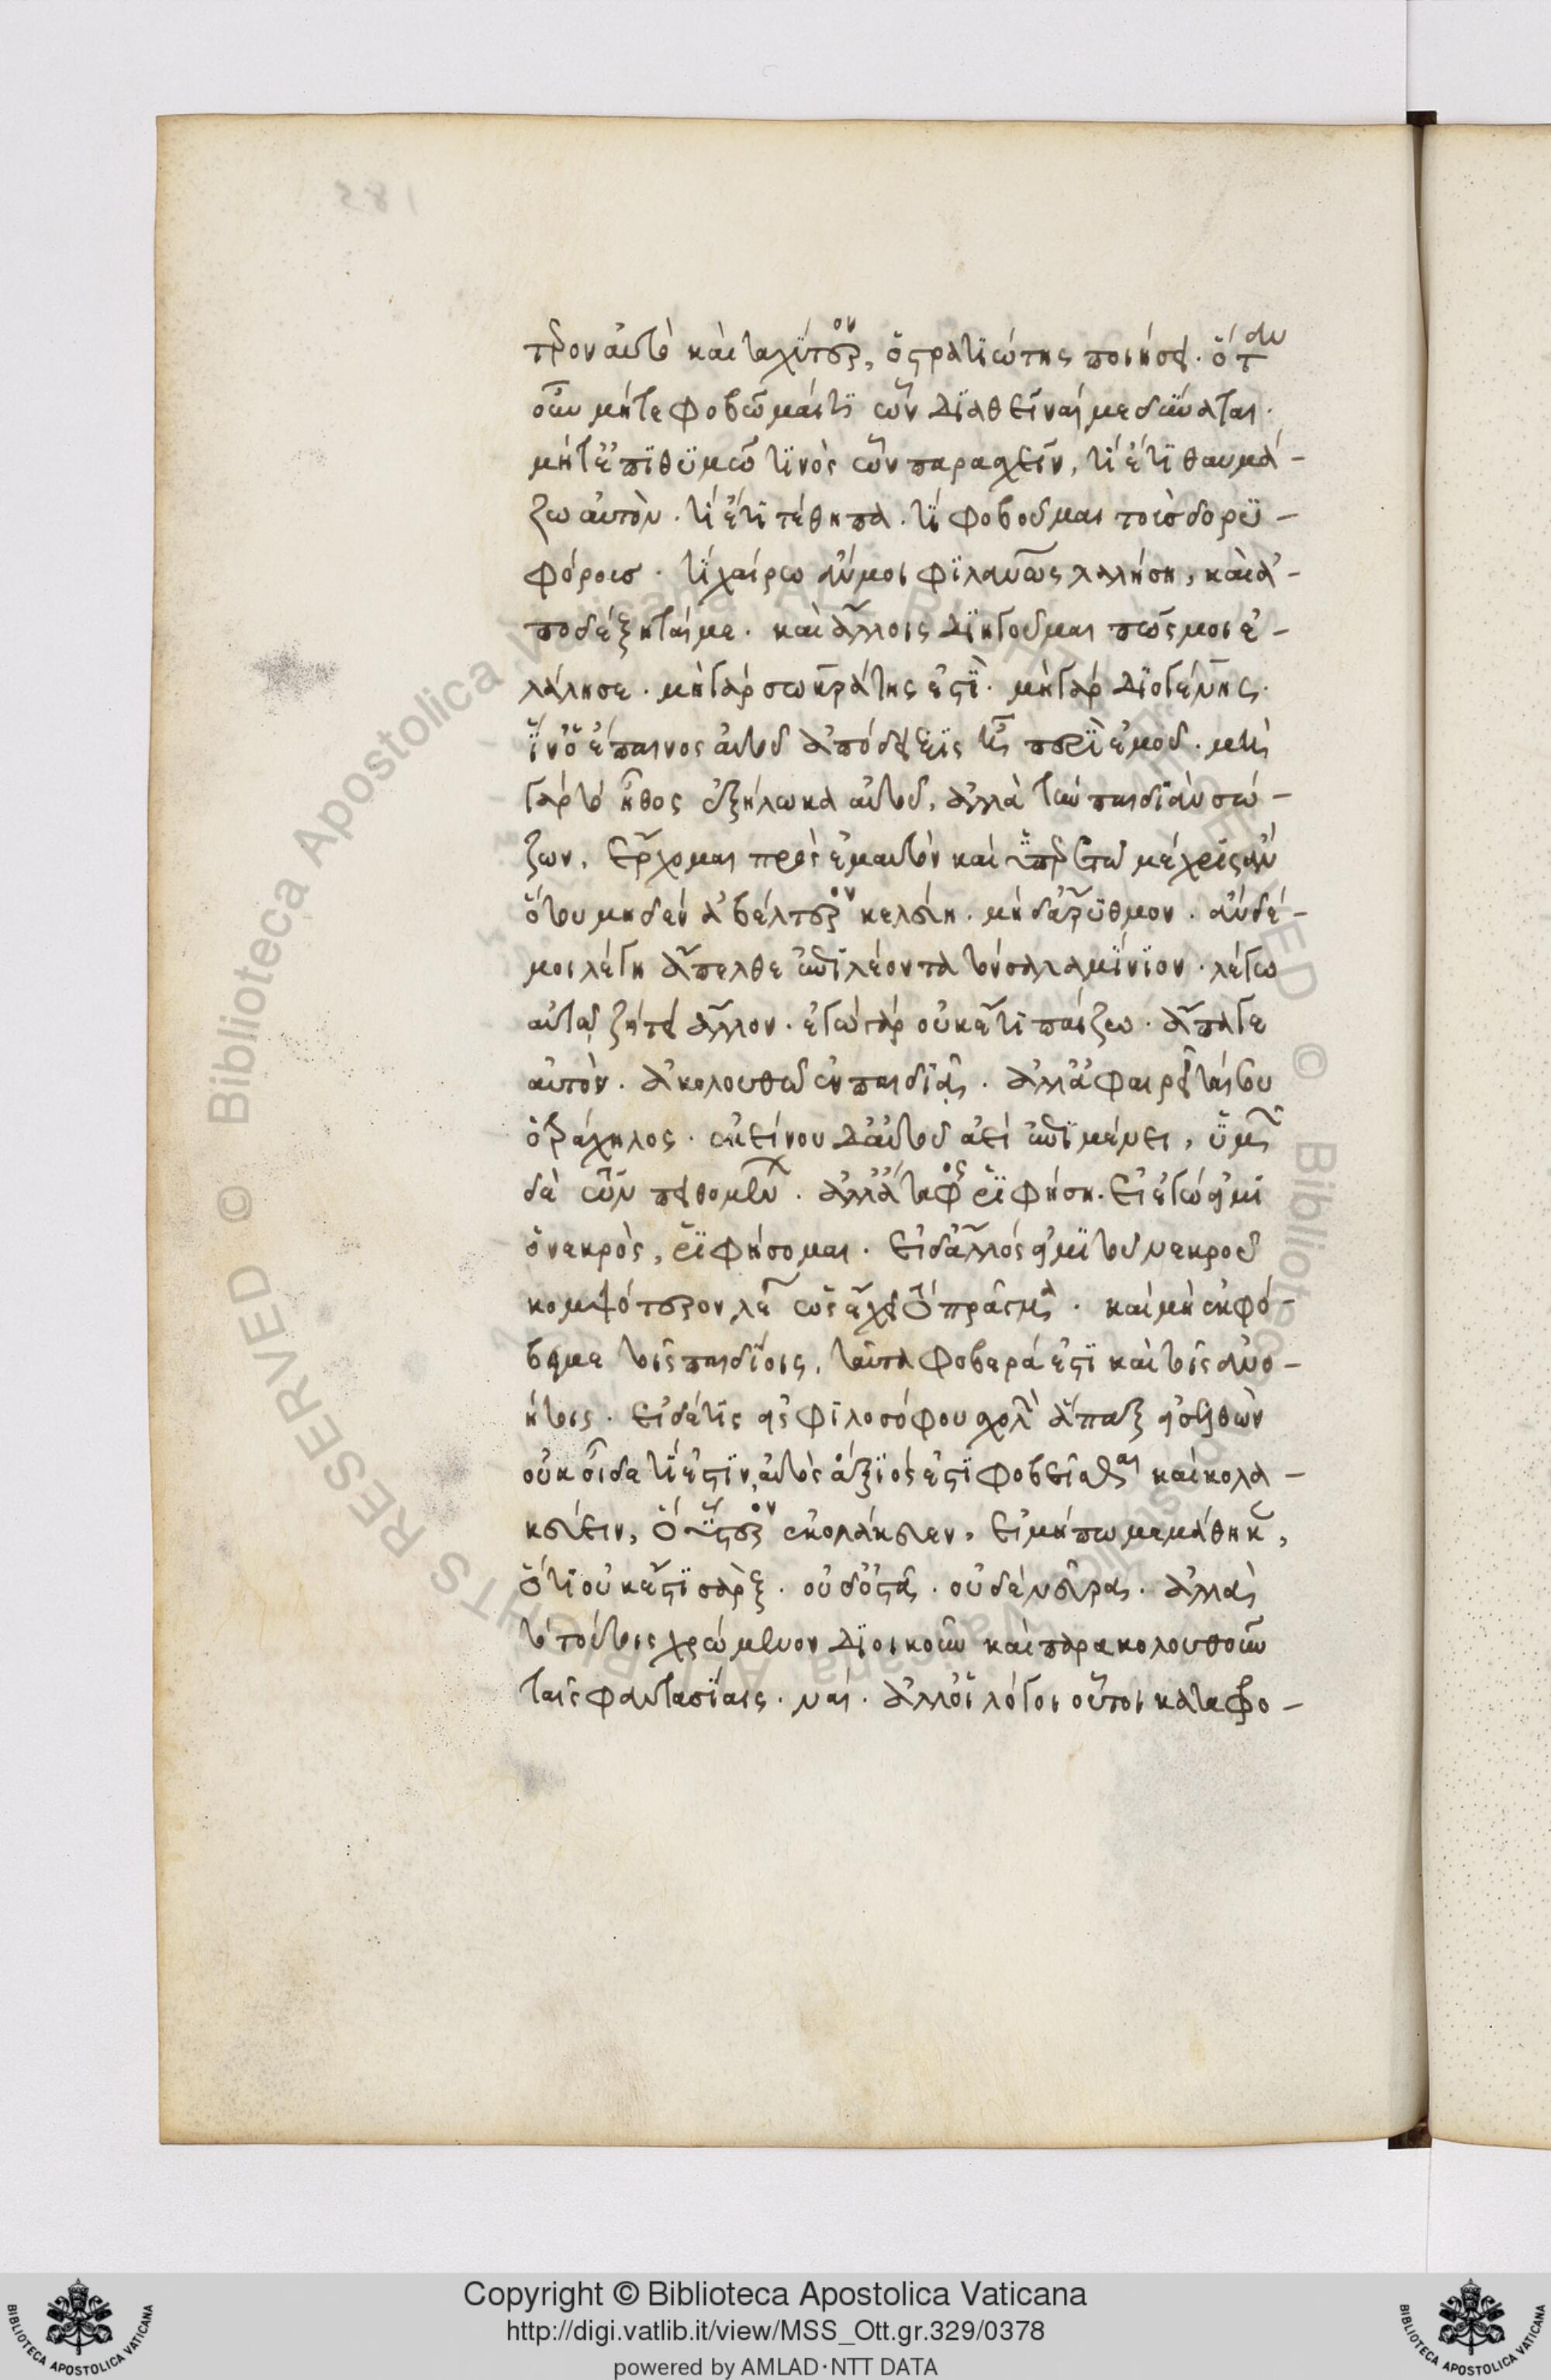 τερον αὐτὸ καὶ ταχύτερον, ὁ στρατιώτης ποιήσει. ὅταν
οὖν μήτε φοβῶμαί τι ὧν διαθεῖναί με δύναται.
μήτ' ἐπιθυμῶ τινὸς ὧν παρασχεῖν, τί ἔτι θαυμά-
ζω αὐτὸν. τί ἔτι τέθηπα. τί φοβοῦμαι τοὺς δορυ-
φόρους. τί χαίρω ἄν μοι φιλανθρώπως λαλήσῃ, καὶ ἀ-
ποδέξηταί με. καὶ ἄλλοις διηγοῦμαι πῶς μοι ἐ-
λάλησε. μὴ γὰρ σωκράτης ἐστὶ. μὴ γὰρ διογένης.
ἵν' ὁ ἔπαινος αὐτοῦ ἀπόδειξις ᾖ περὶ ἐμοῦ. μὴ
γὰρ τὸ ἦθος ἐζήλωκα αὐτοῦ, ἀλλὰ τὴν παιδιὰν σώ-
ζων, ἔρχομαι πρὸς ἐμαυτὸν καὶ ὑπηρετῶ μέχρις ἂν
ὅτου μηδὲν ἀβέλτερον κελεύῃ. μηδ' ἄρυθμον. ἂν δέ
μοι λέγῃ ἄπελθε ἐπὶ λέοντα τὸν σαλαμίνιον. λέγω
αὐτῷ ζήτει ἄλλον. ἐγὼ γὰρ οὐκέτι παίζω. ἄπαγε
αὐτόν. ἀκολουθῶ ἐν παιδιᾷ. ἀλλ' ἀφαιρεῖταί σου
ὁ τράχηλος. ἐκείνου δ' αὐτοῦ ἀεὶ ἐπιμένει, ὑμῶν
δὲ τῶν πειθομένων. ἀλλ' ἄταφος ῥιφήσῃ. εἰ ἐγώ εἰμι
ὁ νεκρὸς, ῥιφήσομαι. εἰ δ' ἄλλός εἰμι τοῦ νεκροῦ
κομψότερον λέγε ὡς ἔχει τὸ πρᾶγμα. καὶ μὴ ἐκφό-
βει με τοῖς παιδίοις, ταῦτα φοβερά ἐστι καὶ τοῖς ἀνο-
ήτοις. εἰ δέ τις εἰς φιλοσόφου σχολὴν ἅπαξ εἰσελθὼν
οὐκ οἶδα τί ἐστιν αὐτὸς ἄξιός ἐστι φοβεῖσθαι καὶ κολα-
κεύειν, οὓς ὕστερον ἐκολάκευεν, εἰ μήπω μεμάθηκεν,
ὅτι οὐκ ἔστι σὰρξ. οὐδ' ὀστᾶ. οὐδὲ νεῦρα. ἀλλὰ
τὸ τούτοις χρώμενον διοικοῦν καὶ παρακολουθοῦν
ταῖς φαντασίαις. ναί. ἀλλ' οἱ λόγοι οὗτοι καταφρο-
Copyright © Biblioteca Apostolica Vaticana
http://digi.vatlib.it/view/MSS_Ott.gr.329/0378
powered by AMLAD·NTT DATA